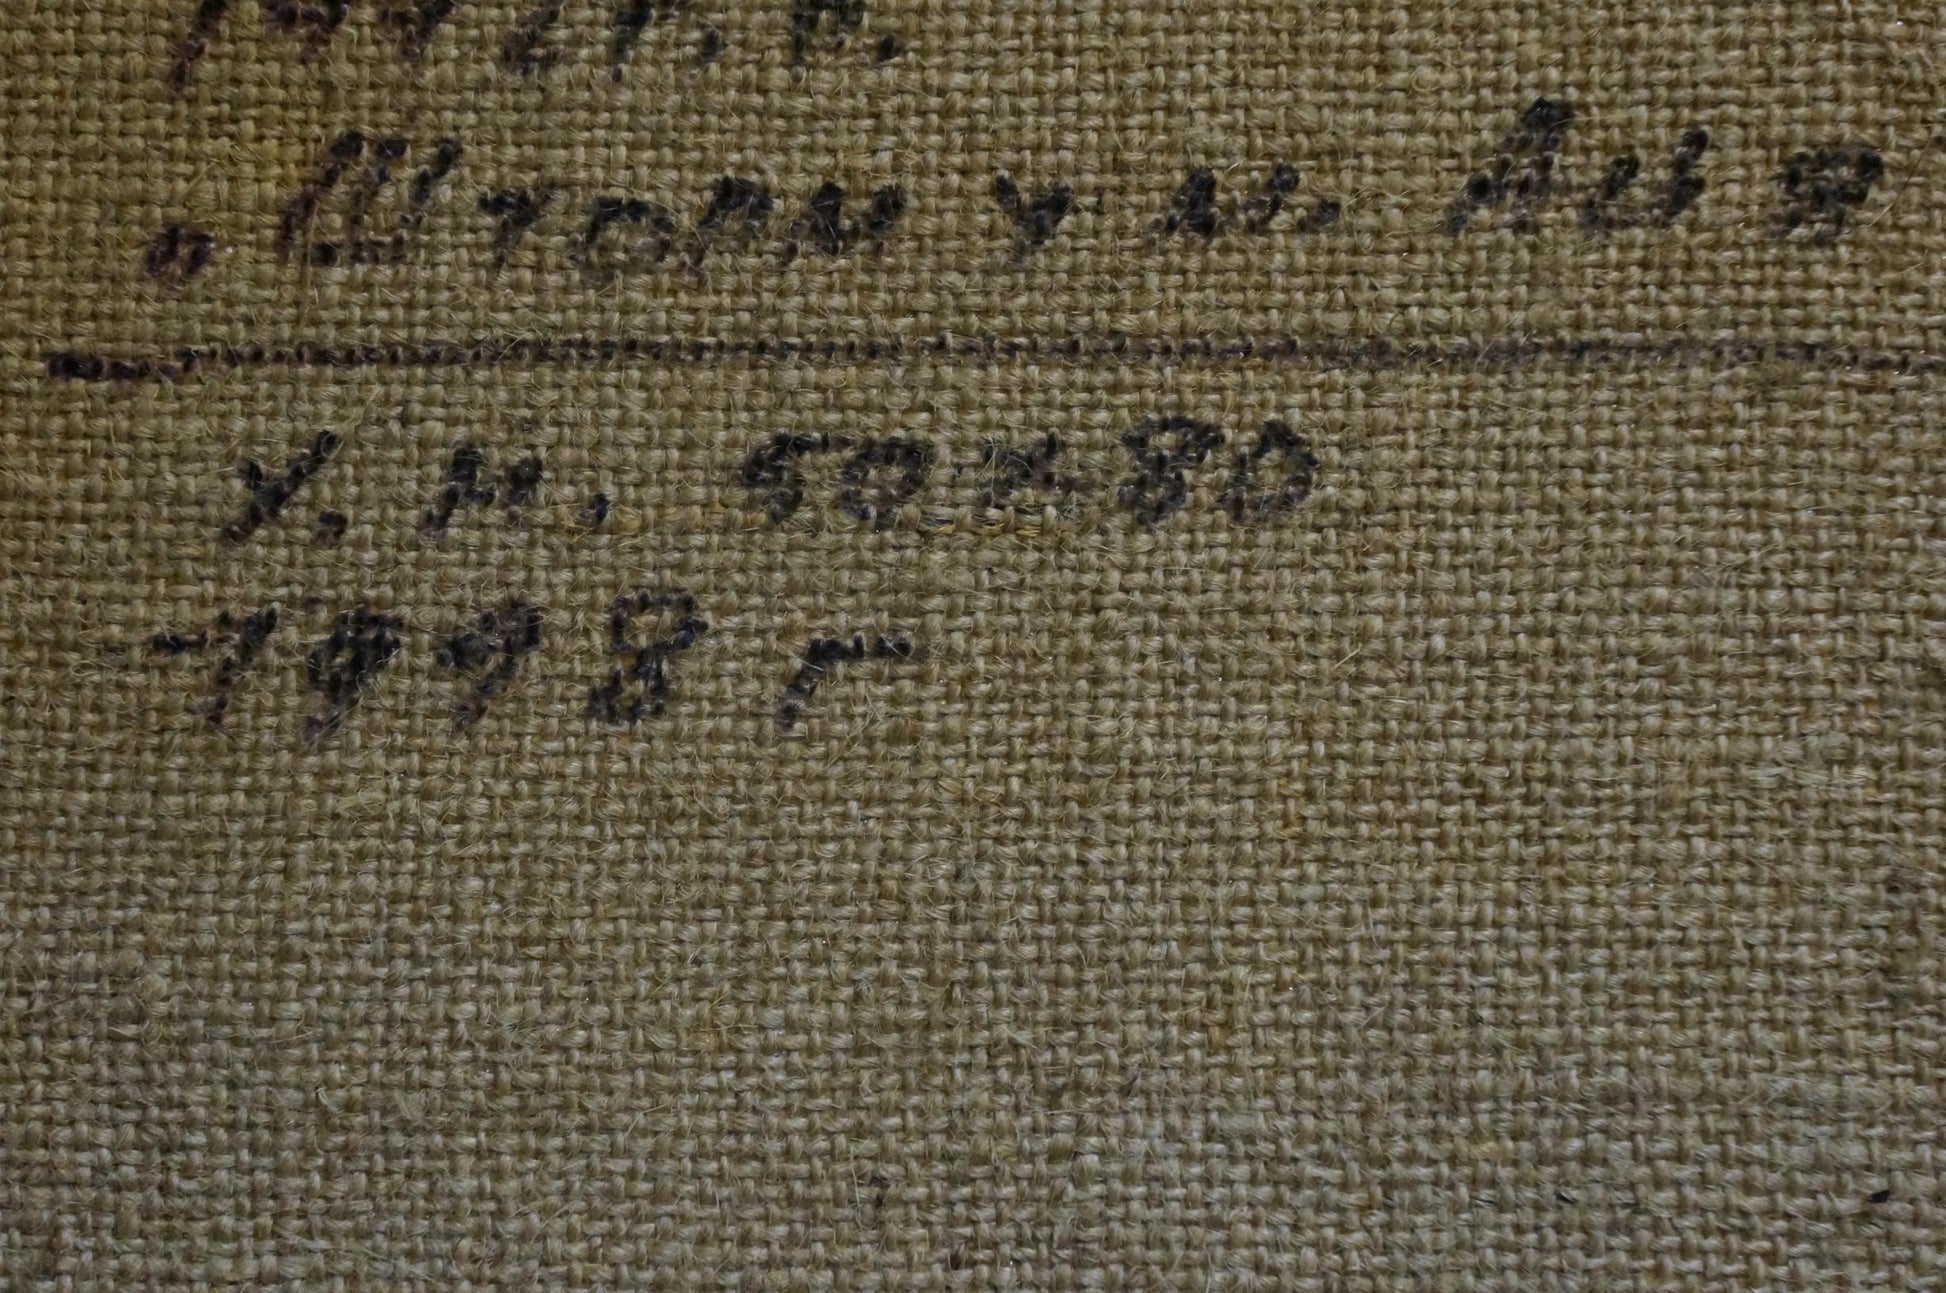 „Шторм у м. Аия
х. м. 50х80
1998 г